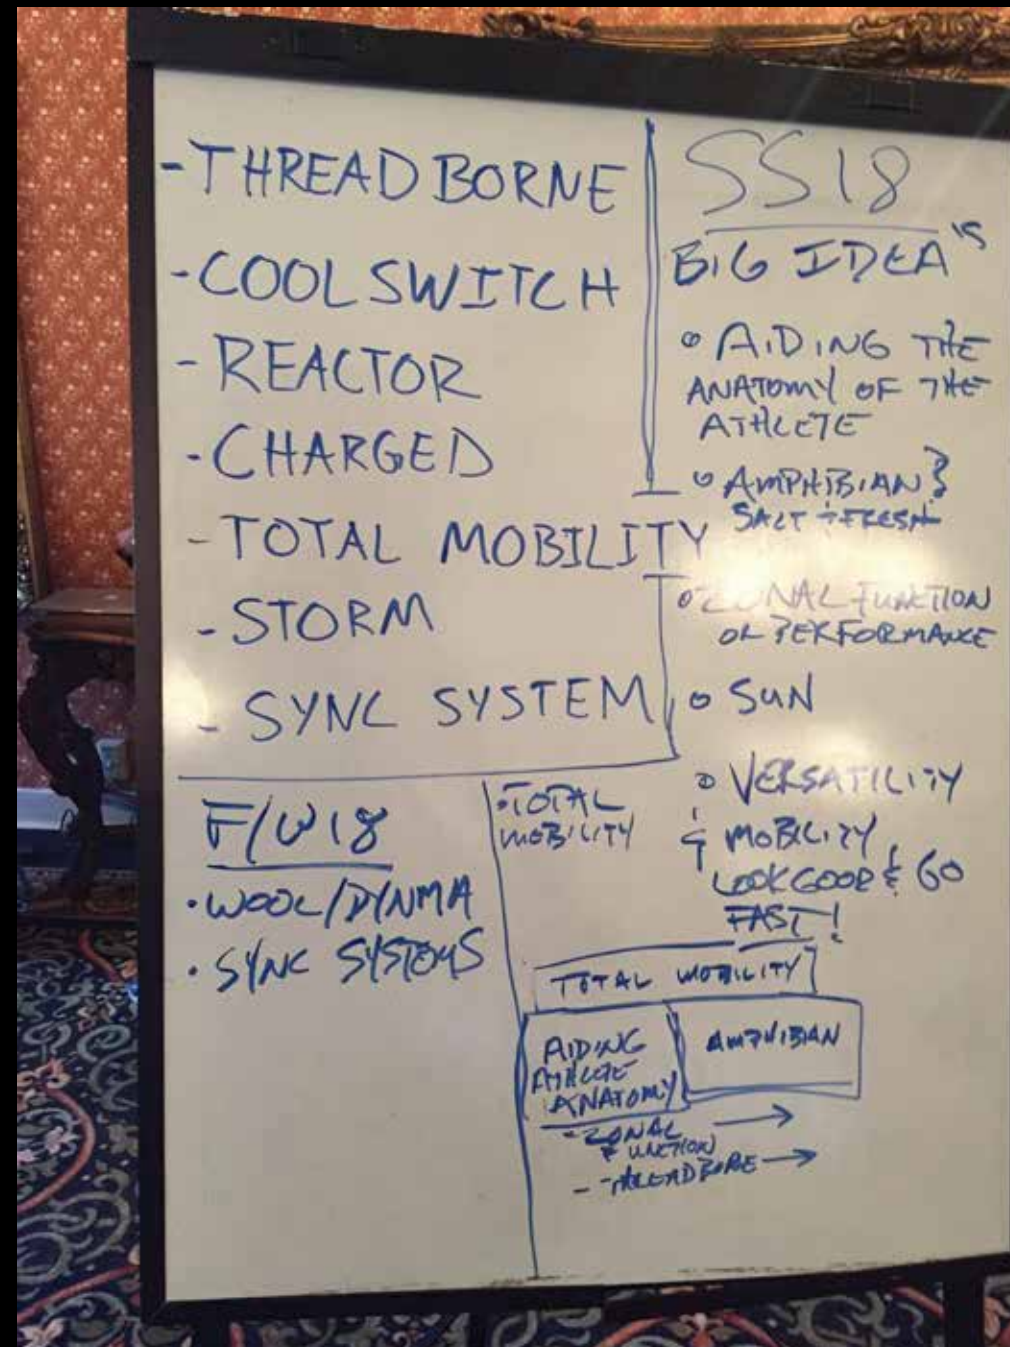 - THREADBORNE
- COOLSWITCH
- REACTOR
- CHARGED
- TOTAL MOBILITY
- STORM
- SYNC SYSTEM
SS18
BIG IDEA'S
• AIDING THE
ANATOMY OF THE
ATHLETE
• AMPHIBIAN }
SALT + FRESH
• ZONAL FUNCTION
OR PERFORMANCE
• SUN
• VERSATILITY
& MOBILITY,
LOOK GOOD & GO
FAST!
F/W18
• WOOL/DYNMA
• SYNC SYSTEMS
• TOTAL
MOBILITY
TOTAL MOBILITY
AIDING
ATHLETE
ANATOMY
AMPHIBIAN
- ZONAL →
FUNCTION
- THREADBORE →